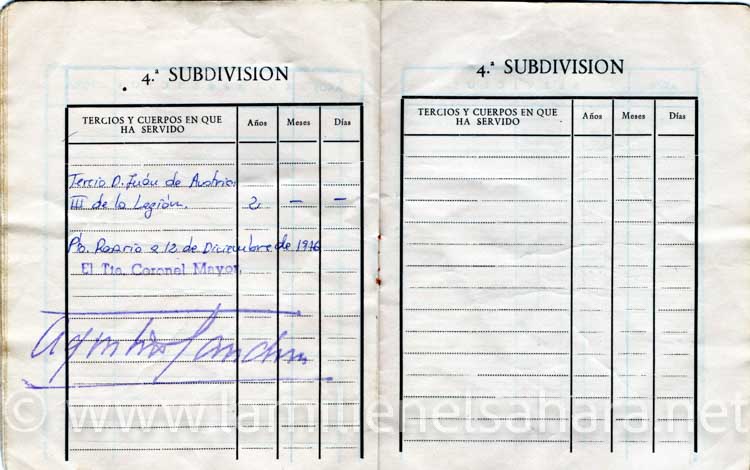 4.ª SUBDIVISION
TERCIOS Y CUERPOS EN QUE
HA SERVIDO
Años
Meses
Días
Tercio D. Juán de Austria
III de la Legión. 2 – –
Pto. Rosario a 12 de Diciembre de 1976
El Tte. Coronel Mayor,
4.ª SUBDIVISION
TERCIOS Y CUERPOS EN QUE
HA SERVIDO
Años
Meses
Días
© www.lamilienelsahara.net